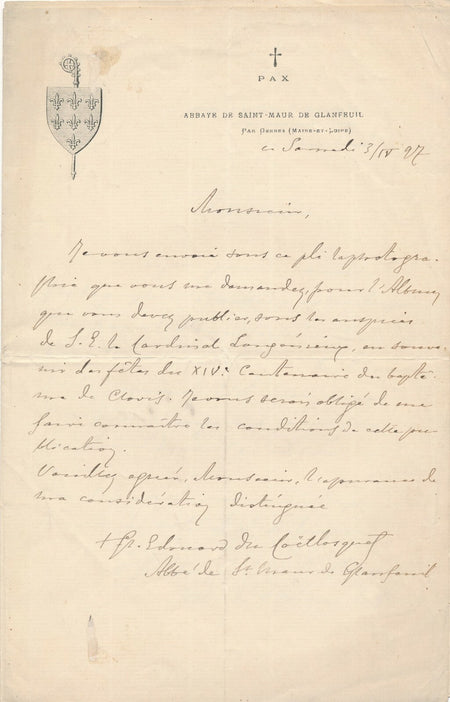 PAX
ABBAYE DE SAINT-MAUR DE GLANFEUIL
PAR GENNES (MAINE-ET-LOIRE)
ce Samedi 3/IV 97
Monsieur,
Je vous envoie sous ce pli la photogra-
phie que vous me demandez, pour l'Album
que vous devez publier, sous les auspices
de S. E. le Cardinal Langénieux, en souve-
nir des fêtes du XIVe Centenaire du baptê-
me de Clovis. Je vous serais obligé de me
faire connaître les conditions de cette pu-
blication.
Veuillez agréer, Monsieur, l'assurance de
ma considération distinguée
+ fr. Edouard du Coëtlosquet
Abbé de St Maur de Glanfeuil